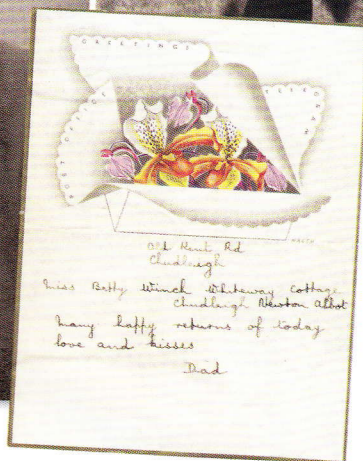 GREETINGS
POST OFFICE
TELEGRAM
Old Kent Rd
Chudleigh
Miss Betty Winch Whiteway Cottage
Chudleigh Newton Abbot
Many happy returns of today
love and kisses
Dad